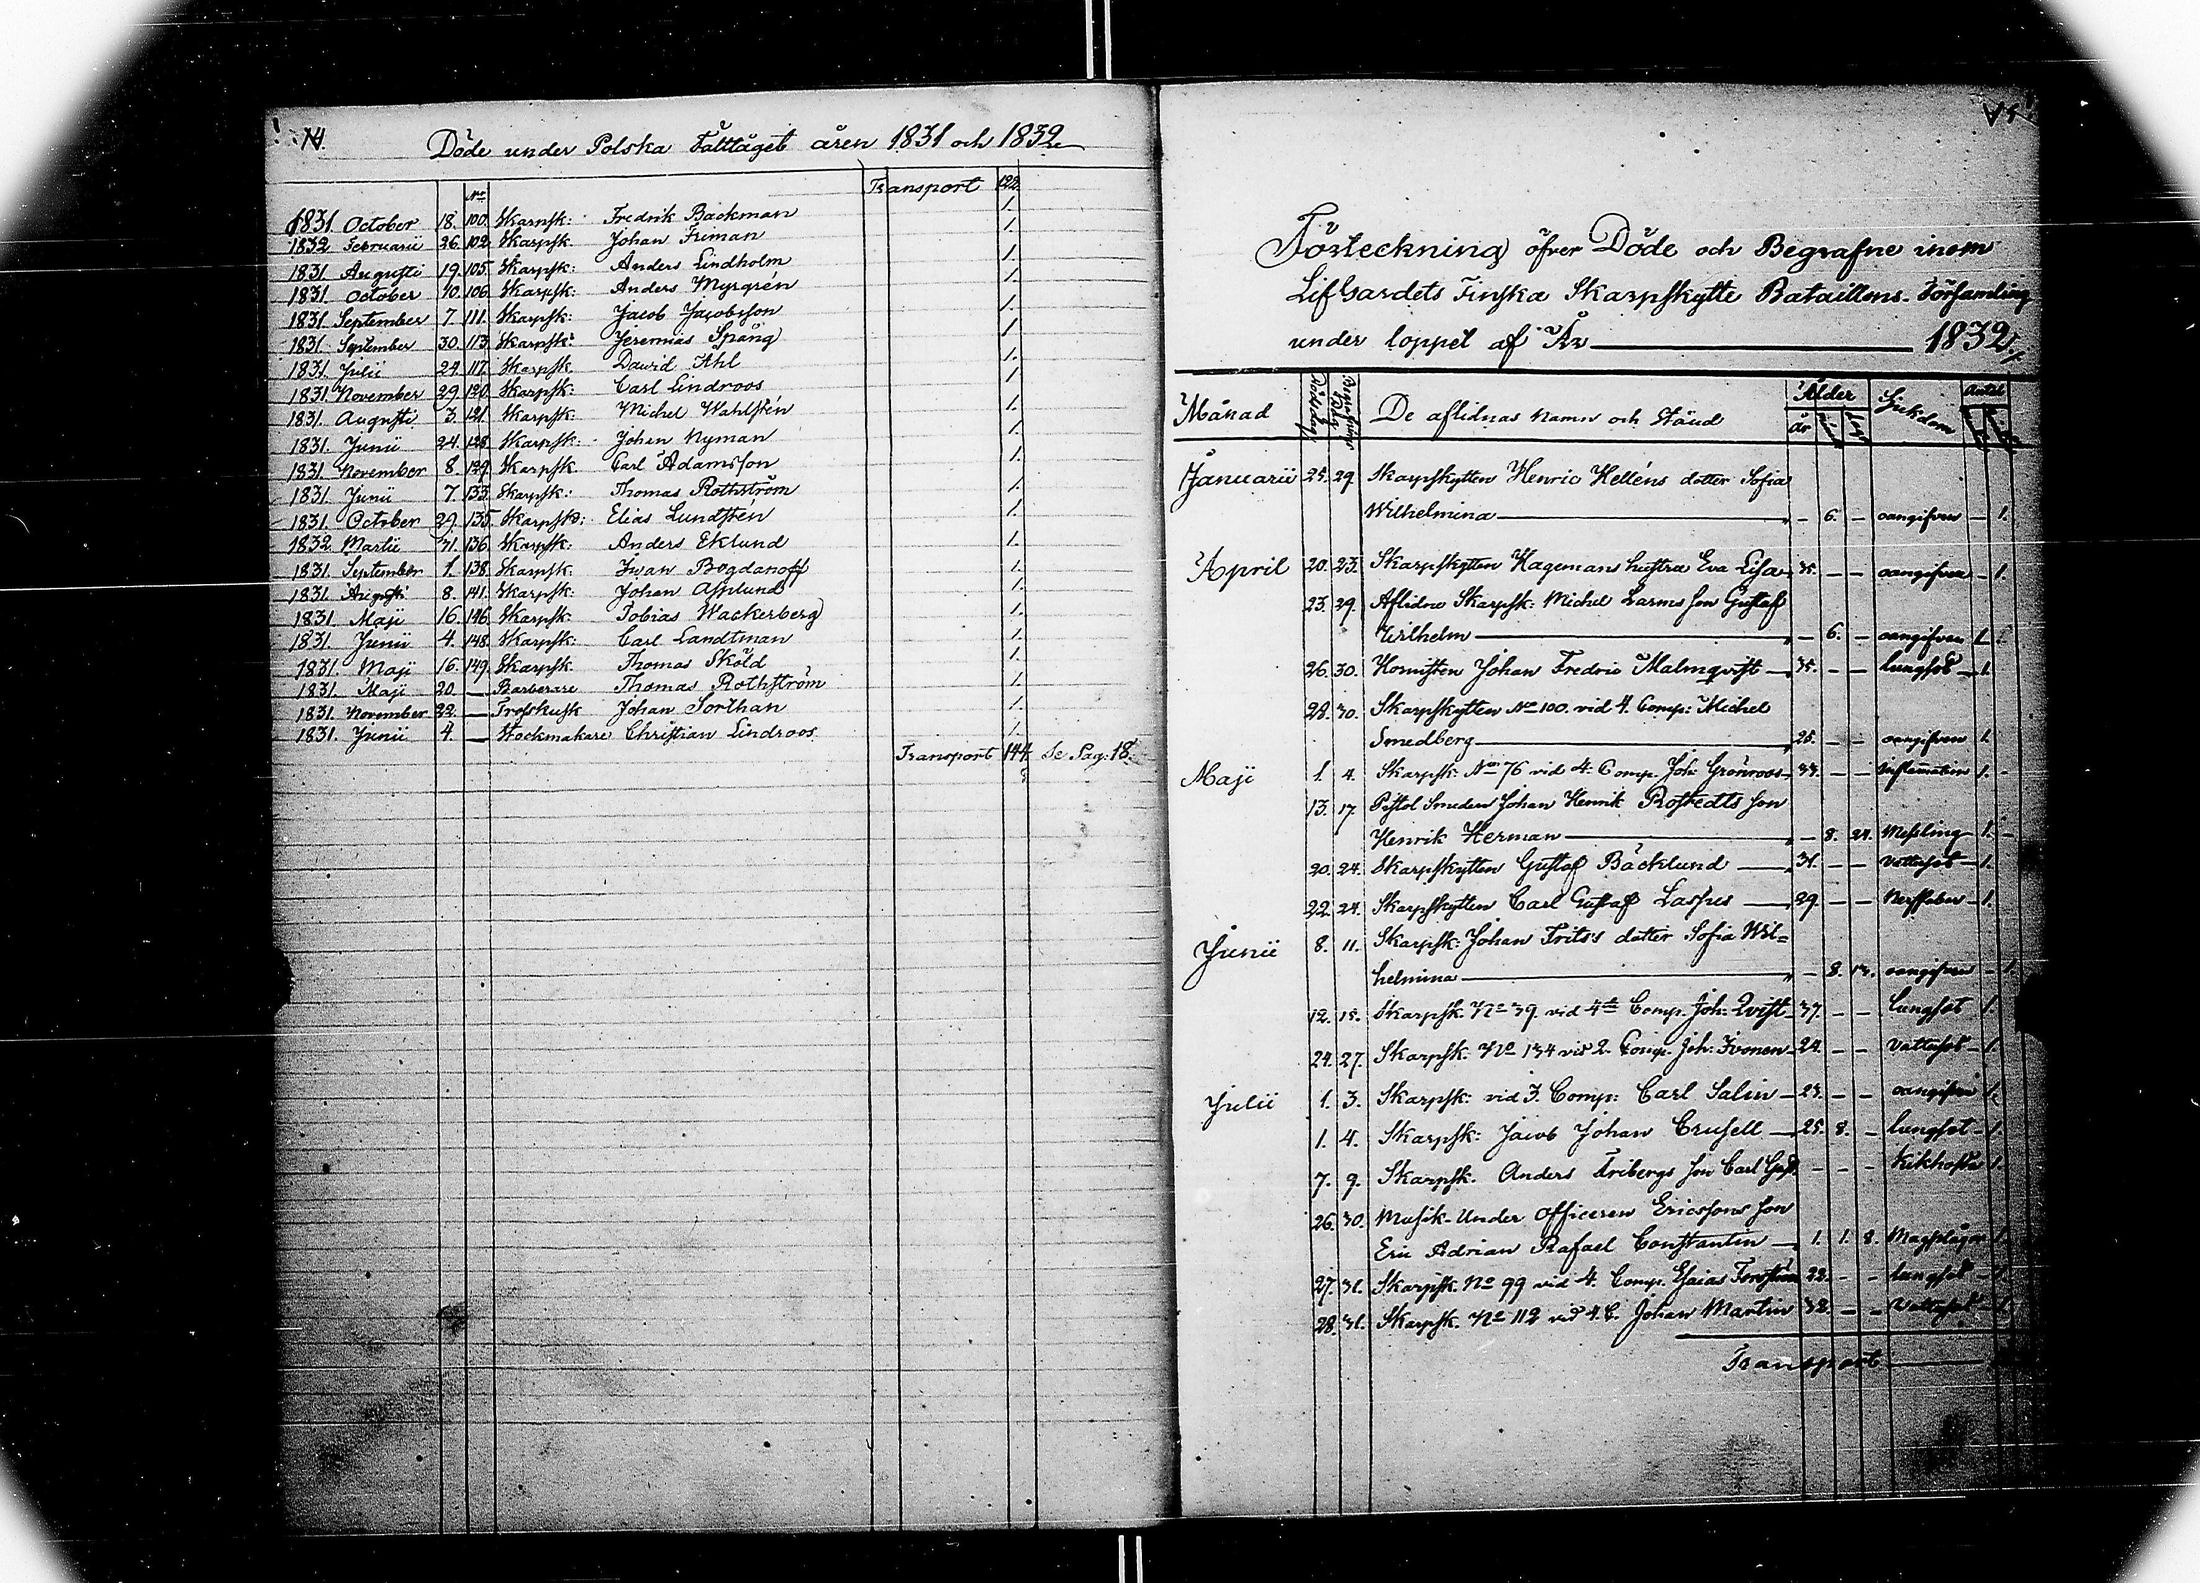 74.
Döde under Polska Fälttåget åren 1831 och 1832
Transport 122
No
1831 October 18. 100. Skarpsk: Fredrik Backman 1.
1832 Februarii 26. 102. Skarpsk. Johan Friman 1.
1831 Augusti 19. 105. Skarpsk: Anders Lindholm 1.
1831 October 10. 106. Skarpsk: Anders Myrgrén 1.
1831 September 7. 111. Skarpsk: Jacob Jacobsson 1.
1831 September 30. 113. Skarpsk: Jeremias Spång 1.
1831. Julii 24. 117. Skarpsk. Dawid Ahl 1.
1831 November 29. 120. Skarpsk: Carl Lindroos 1.
1831. Augusti 3. 121. Skarpsk: Michel Wahlstén 1.
1831. Junii 24. 128. Skarpsk: Johan Nyman 1.
1831 November 8. 129. Skarpsk. Carl Adamsson 1.
1831. Junii 7. 133. Skarpsk: Thomas Rothström 1.
1831. October 29. 135. Skarpsk: Elias Lundstén 1.
1832 Martii 31. 136. Skarpsk: Anders Eklund 1.
1831. September 1. 138. Skarpsk. Iwan Bogdanoff 1.
1831. Augusti 8. 141. Skarpsk: Johan Asplund 1.
1831. Maji 16. 146. Skarpsk. Tobias Wackerberg 1.
1831. Junii 4. 148. Skarpsk: Carl Landtman 1.
1831. Maji 16. 149. Skarpsk. Thomas Sköld 1.
1831. Maji 20. — Barberare Thomas Rothström 1.
1831. November 22. — Trosskusk Johan Sorthan 1.
1831. Junii 4. — Stockmakare Christian Lindroos 1.
Transport 144. Se Pag: 18.
Förteckning öfver Döde och Begrafne inom
LifGardets Finska Skarpskytte Bataillons-Församling
under loppet af År — 1832
Månad Dödsdag Begrafnings De aflidnas namn och Stånd Ålder Sjukdom Antal
år
Januarii 25. 29. Skarpskytten Henric Helléns dotter Sofia
Wilhelmina — – 6. – oangifven – 1.
April 20. 23. Skarpskytten Hagemans hustru Eva Lisa 35. – – oangifven – 1.
23. 29. Aflidne Skarpsk: Michel Larms son Gustaf
Wilhelm — – 6. – oangifven 1.
26. 30. Hornisten Johan Fredric Malmqvist 35. – – lungsot 1.
28. 30. Skarpskytten No 100. vid 4. Comp: Michel
Smedberg — 25. – – oangifven 1.
Maji 1. 4. Skarpsk: No 76 vid 4. Comp. Joh: Grönroos 33. – – Inflamation 1. –
13. 17. Pistol Smeden Johan Henrik Rostedts son
Henrik Herman — – 8. 24. Messling 1. –
20. 24. Skarpskytten Gustaf Bäcklund — 31. – – vattusot 1.
22. 24. Skarpskytten Carl Gustaf — 29. – – Nerffeber 1.
Junii 8. 11. Skarpsk: Johan Frits's dotter Sofia Wil=
helmina — – 8. 13. oangifven – 1.
12. 15. Skarpsk. No 39. vid 4de Comp. Joh: Qvist 37. – – lungsot 1.
24. 27. Skarpsk. No 134 vid 2. Comp. Joh: Ivonen 24. – – Vattusot 1.
Julii 1. 3. Skarpsk: vid 3. Comp: Carl Salin 23. – – oangifven 1.
1. 4. Skarpsk: Jacob Johan Crusell 25. 8. – lungsot 1.
7. 9. Skarpsk. Anders Fribergs son Carl Gust. – – – Kikhosta 1.
26. 30. Musik-Under Officeren Ericssons son
Eric Adrian Rafael Constantin 1. 1. 8. Magplågor 1.
27. 31. Skarpsk. No 99 vid 4. Comp. Esaias 22. – – lungsot 1.
28. 31. Skarpsk. No 112 vid 4. C. Johan Martin 32. – – Vattusot 1.
Transport —